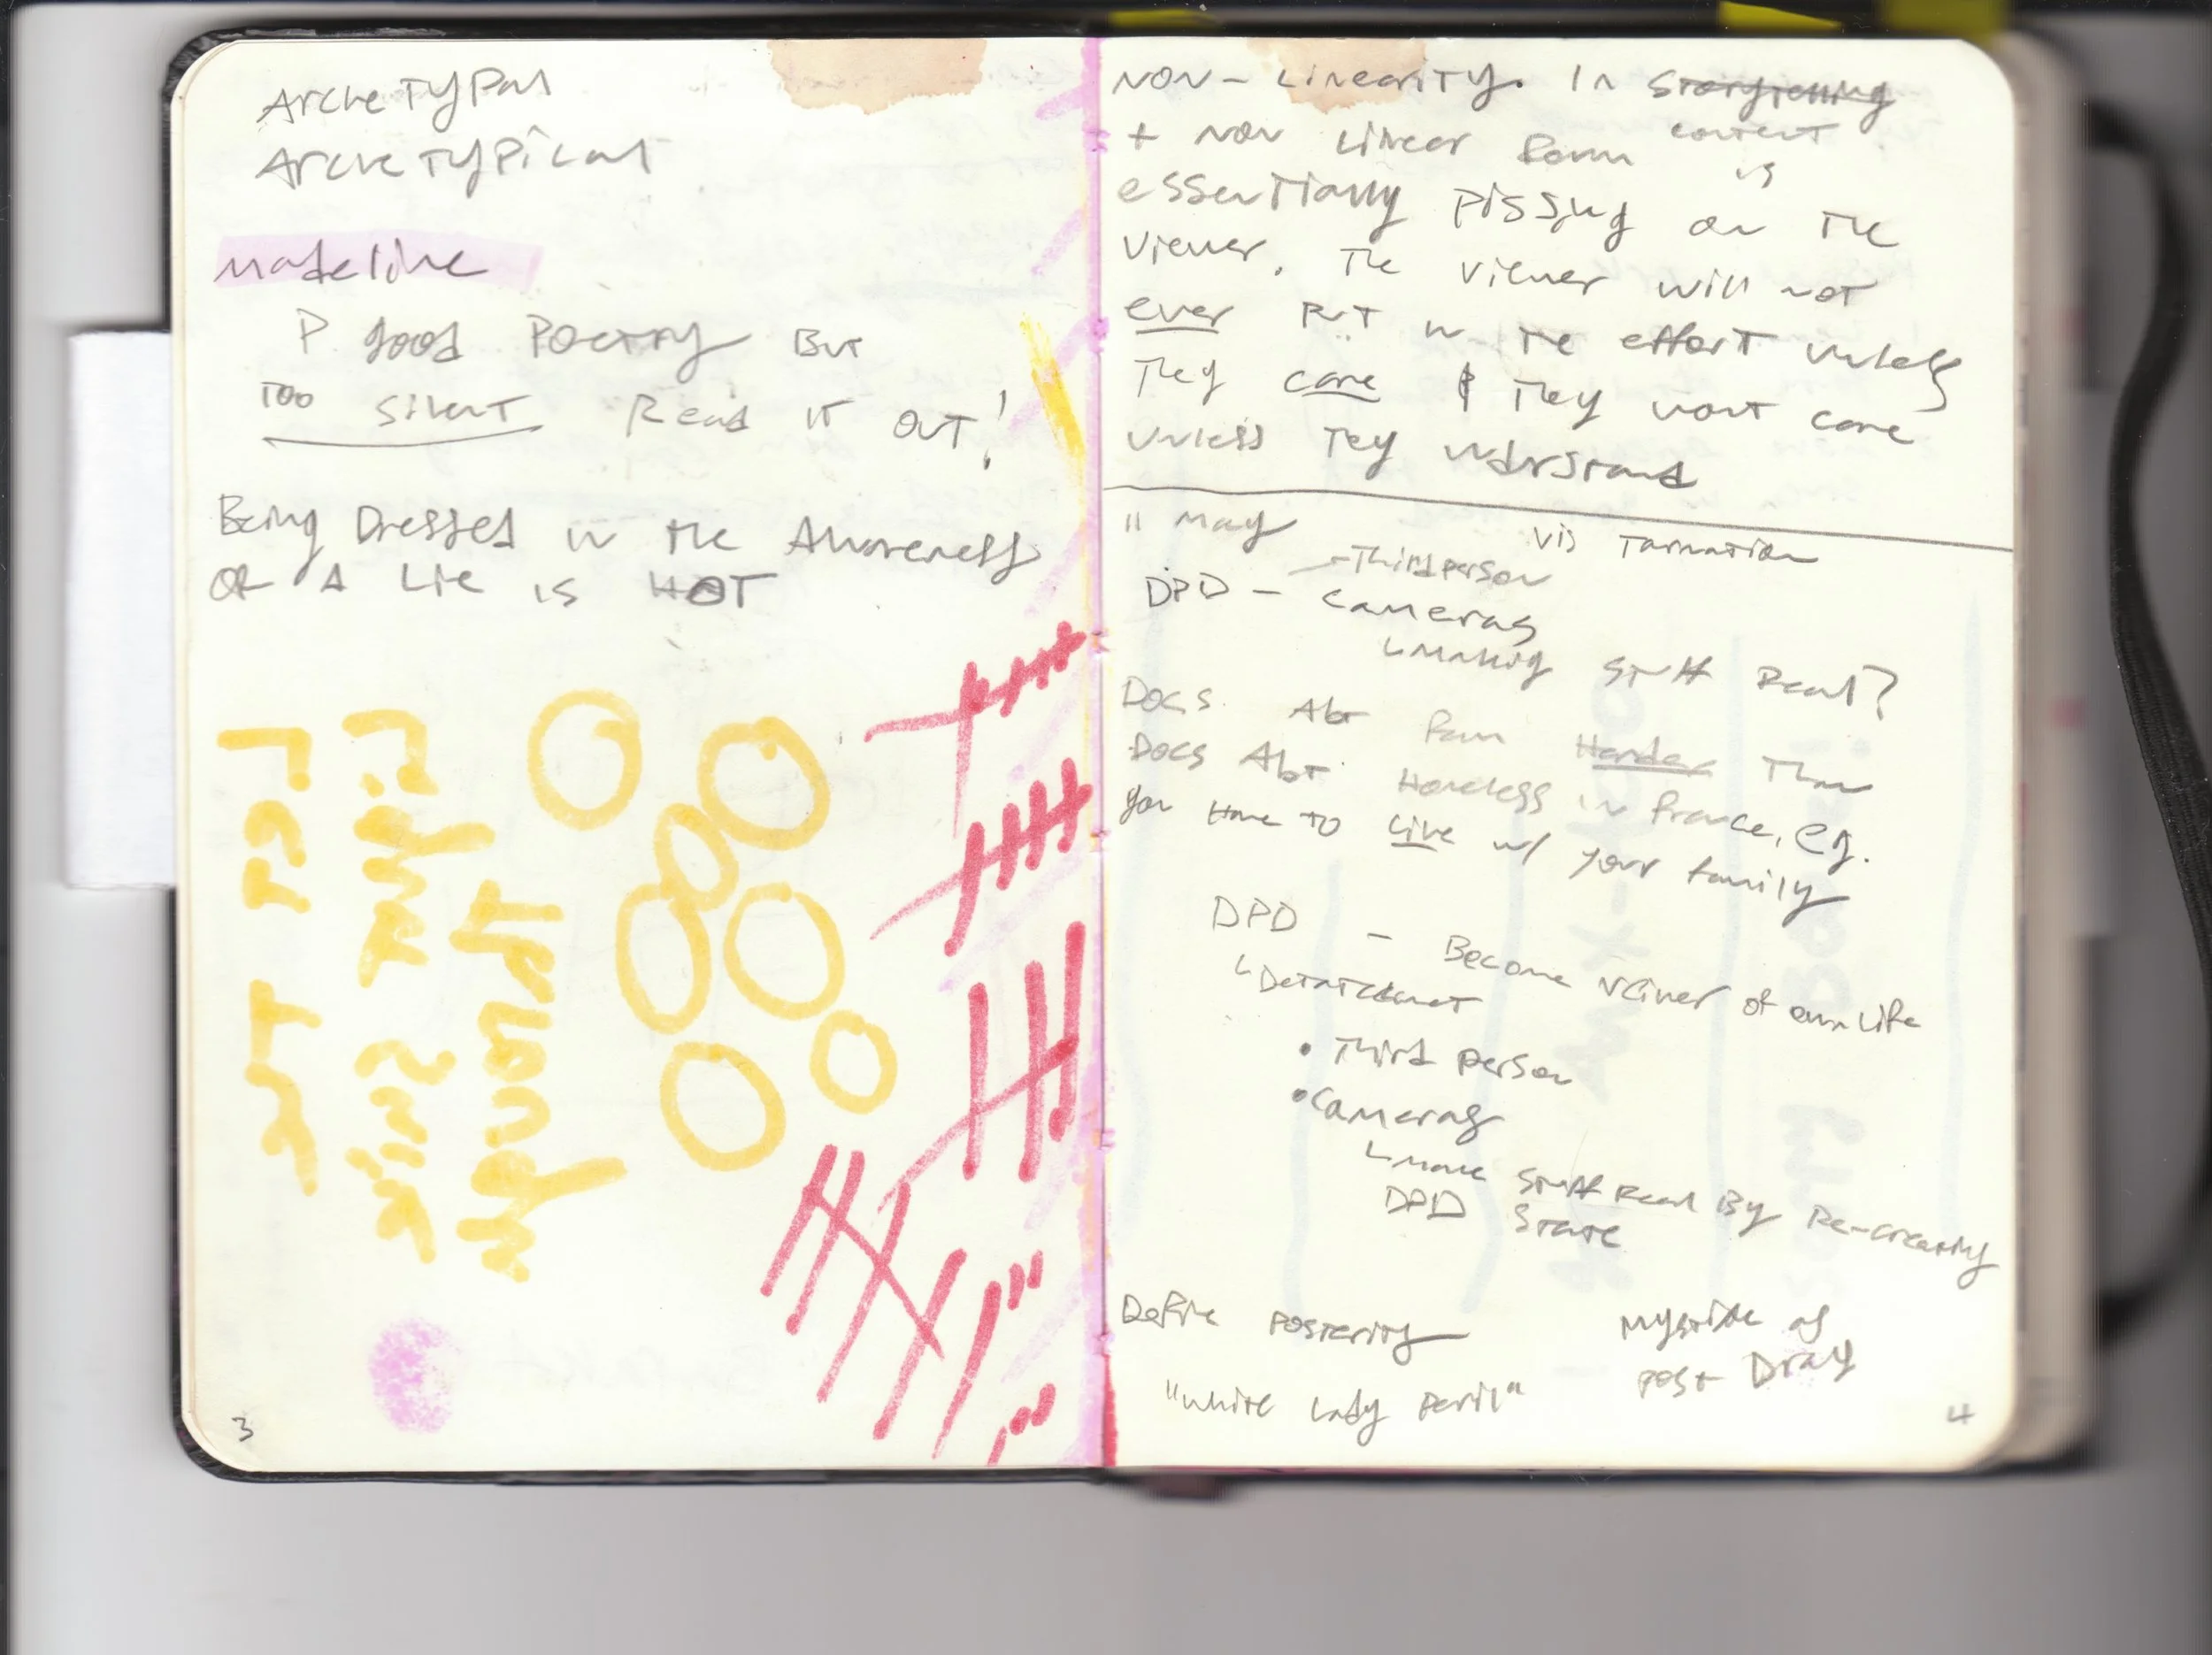 Archetypal
Archetypical
Madeline
P. good Poetry But
Too silent Read it out!
Being Dressed in the Awareness
OF A Lie is HOT
Let it
around
3
NON-Linearity. In Storytelling
content
+ NON Linear Form is
essentially pissing on the
viewer. The viewer will not
ever put in the effort unless
They care & They wont care
unless They understand
11 May Vis Tarnation
Third person
DPD - cameras
making stuff Real?
Docs. Abt Fam Harder Than
Docs Abt Homeless in France, e.g.
you Have to Live w/ your family
DPD - Become viewer of own Life
Detatchment
• Third person
• Cameras
make stuff real By Re-creating
DPD State
Define Posterity
Mystique as
post Dray
"White Lady Peril"
4